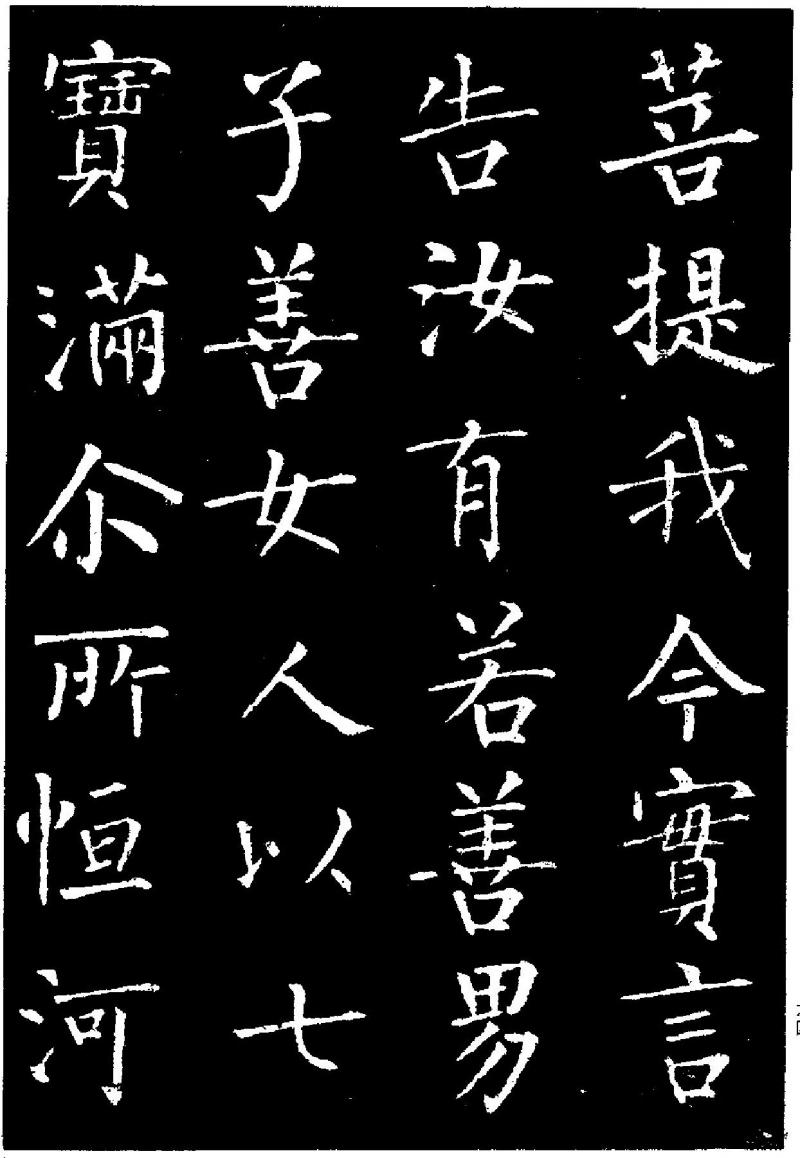 菩提我今實言
告汝有若善男
子善女人以七
寶滿尒所恒河